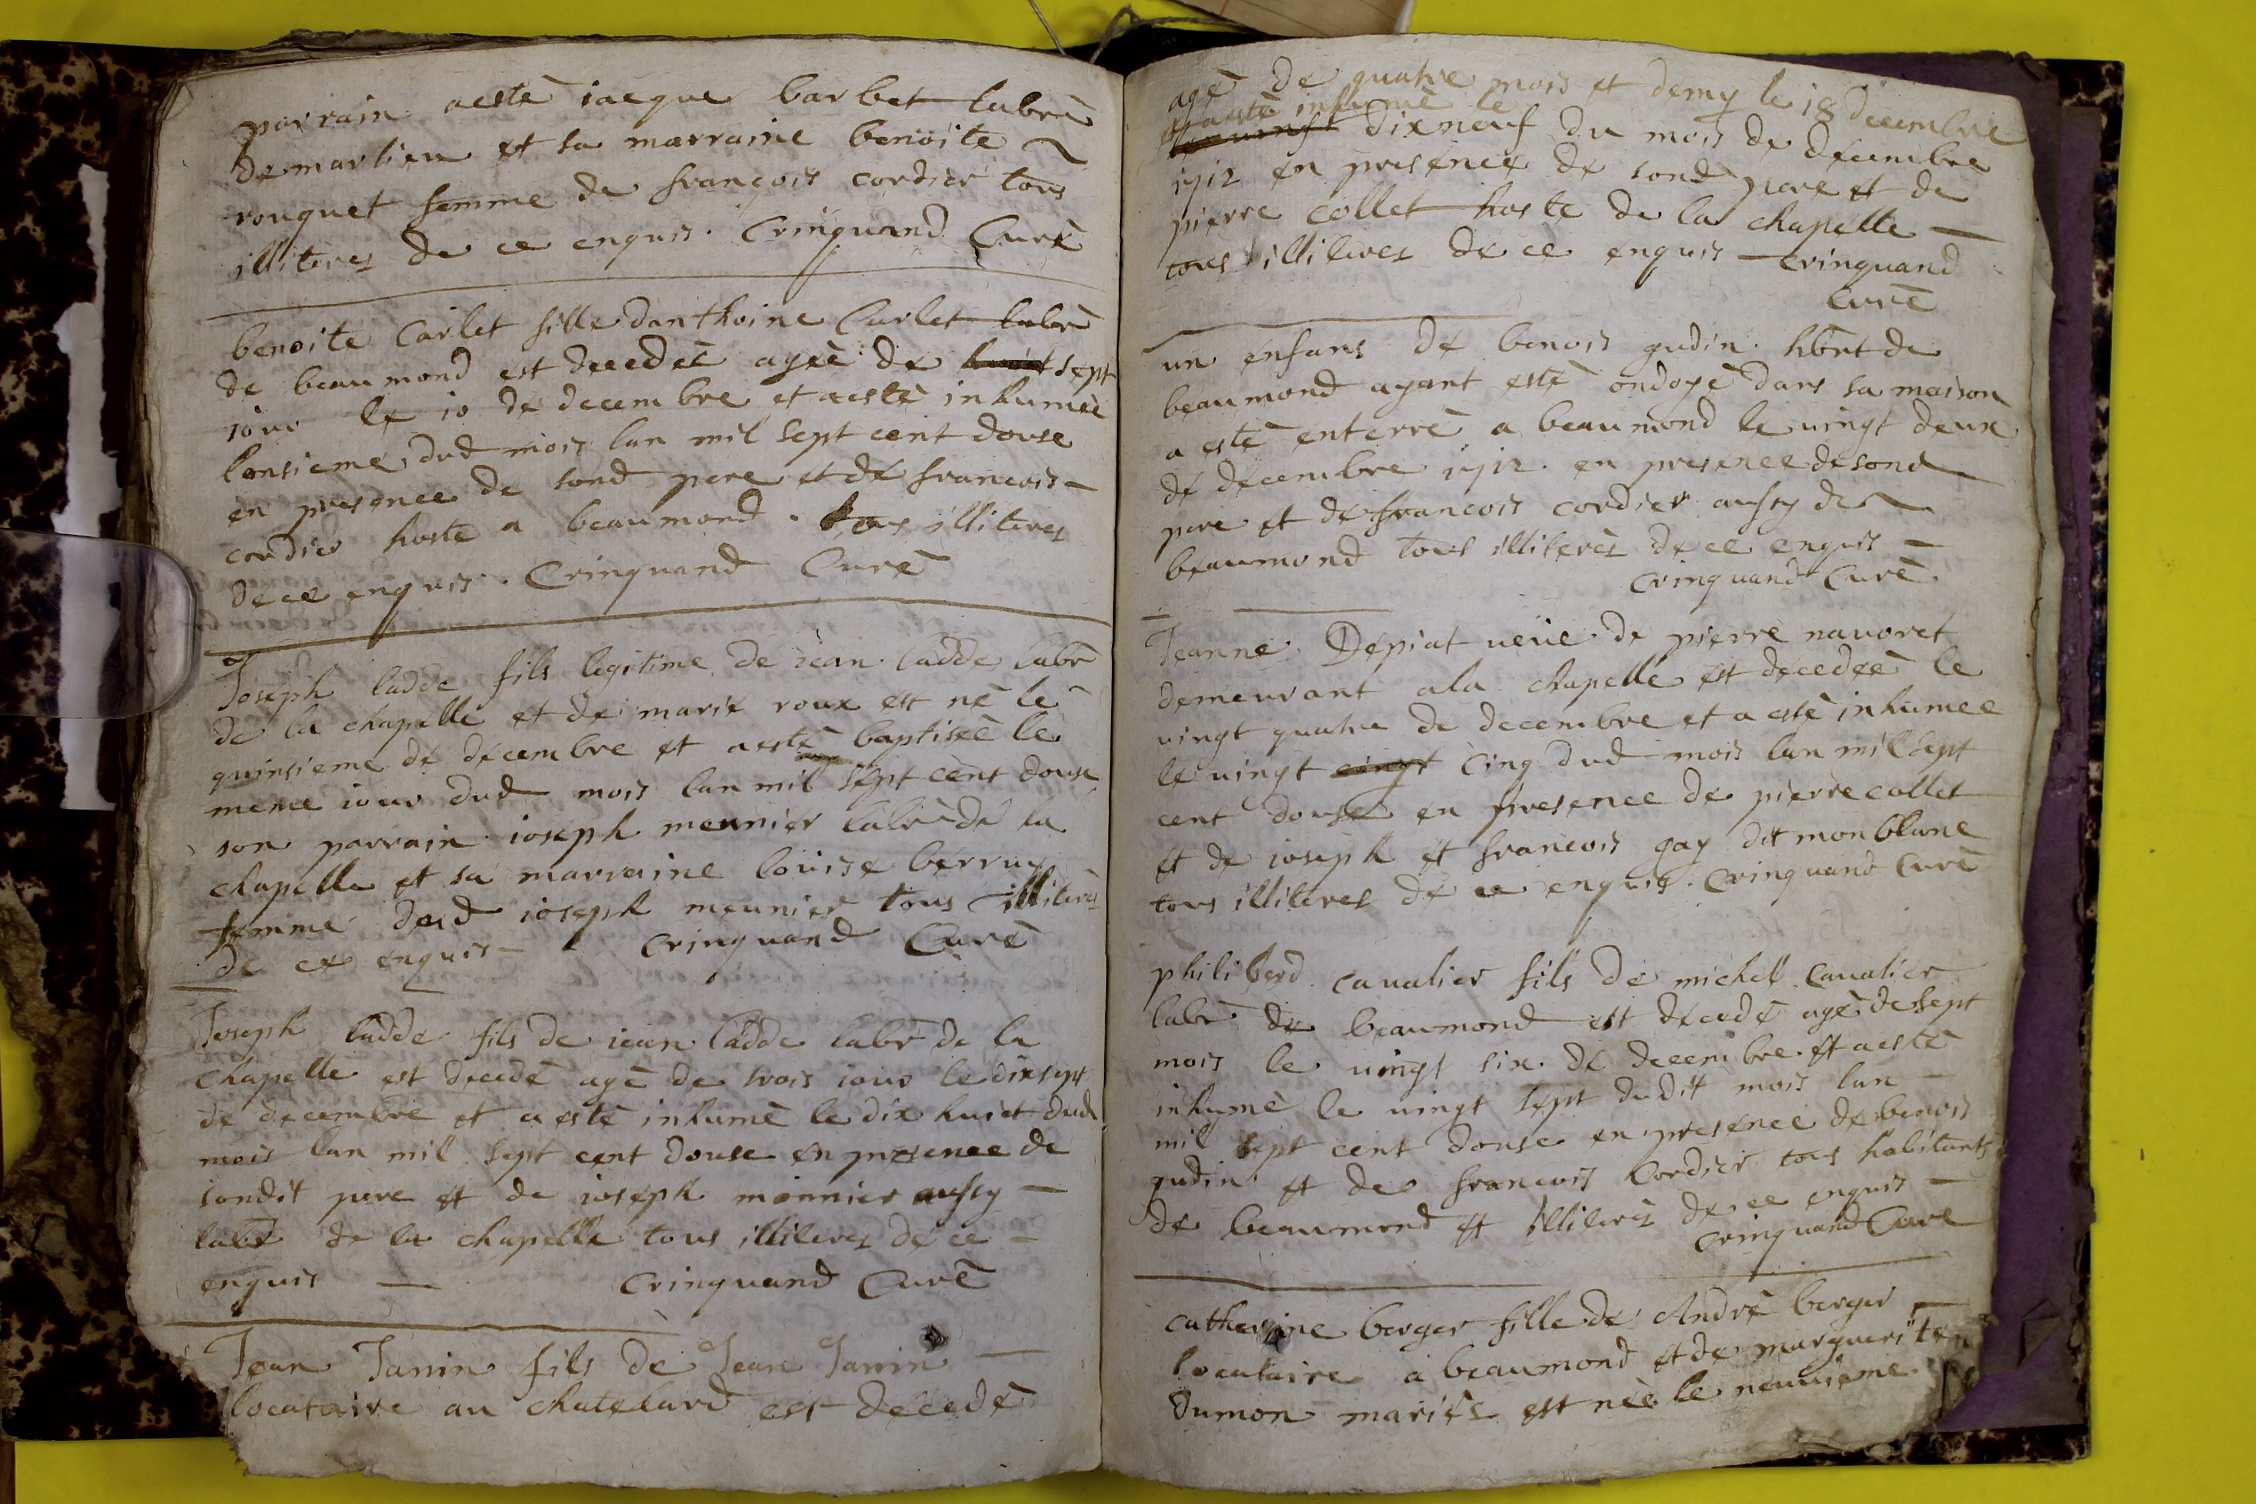 parrain aestē iacque barbet labrē
de marlieu et sa marraine benoite
rouquet femme de françois cordier tous
illiteres de ce enquis. Crinquand Curē
benoite Carlet fille danthoine Carlet labrē
de beaumond est decedēe agēe de huict sept
iour le 10 de decembre et aestē inhumēe
lonsieme dud mois lan mil sept cent douse
en presence de sond pere et de francois
cordier hoste a beaumond. tous illiteres
de ce enquis. Crinquand Curē
Joseph ladde fils legitime de iean ladde labr
de la chapelle et de marie roux est nē le
quinsieme de decembre et aestē baptisēe le
meme iour dud mois lan mil sept cent douse
son parrain ioseph meunier labrē de la
chapelle et sa marraine louise berruy
femme dud ioseph meunier tous illiterēs
de ce enquis crinquand Curē
Joseph ladde fils de iean ladde labr de la
chapelle est decedē agē de trois iour le dix sept
de decembre et a estē inhumē le dix huict dud
mois lan mil sept cent douse en presence de
sondit pere et de ioseph monnier aussy
labr de la chapelle tous illiteres de ce
enquis crinquand Curē
Jean Janin fils de Jean Janin
locataire au chatelard est decedē
agē de quatre mois et demy le 18 decembre
et aestē inhumē le
dixneuf du mois de decembre
1712 en presence de sond pere et de
pierre collet hoste de la chapelle
tous illiteres de ce enquis crinquand
Curē
un enfans de benois gudin hbnt de
beaumond ayant estē ondoyē dans sa maison
a estē enterrē a beaumond le vingt deux
de decembre 1712. en presence de sond
pere et de francois cordier aussy de
beaumond tous illiterēs de ce enquis
crinquand Curē
Jeanne Depiat veüe de pierre navoret
demeurant a la chapelle est decedēe le
vingt quatre de decembre et a estē inhumee
le vingt vingt cinq dud mois lan mil sept
cent douse en presence de pierre collet
et de ioseph et francois gay dit monblanc
tous illiteres de ce enquis. crinquand Curē
philiberd cavalier fils de michell Cavalier
labr de beaumond est decedē agē de sept
mois le vingt six de decembre et aestē
inhumē le vingt sept dudit mois lan
mil sept cent douse en presence de benois
gudin et de francois Cordier tous habitants
de beaumond et illiterēs de ce enquis
crinquand Cure
catherine berger fille de Andrē berger
locataire a beaumond et de marguerite
dumon mariēs est nēe le neuvieme